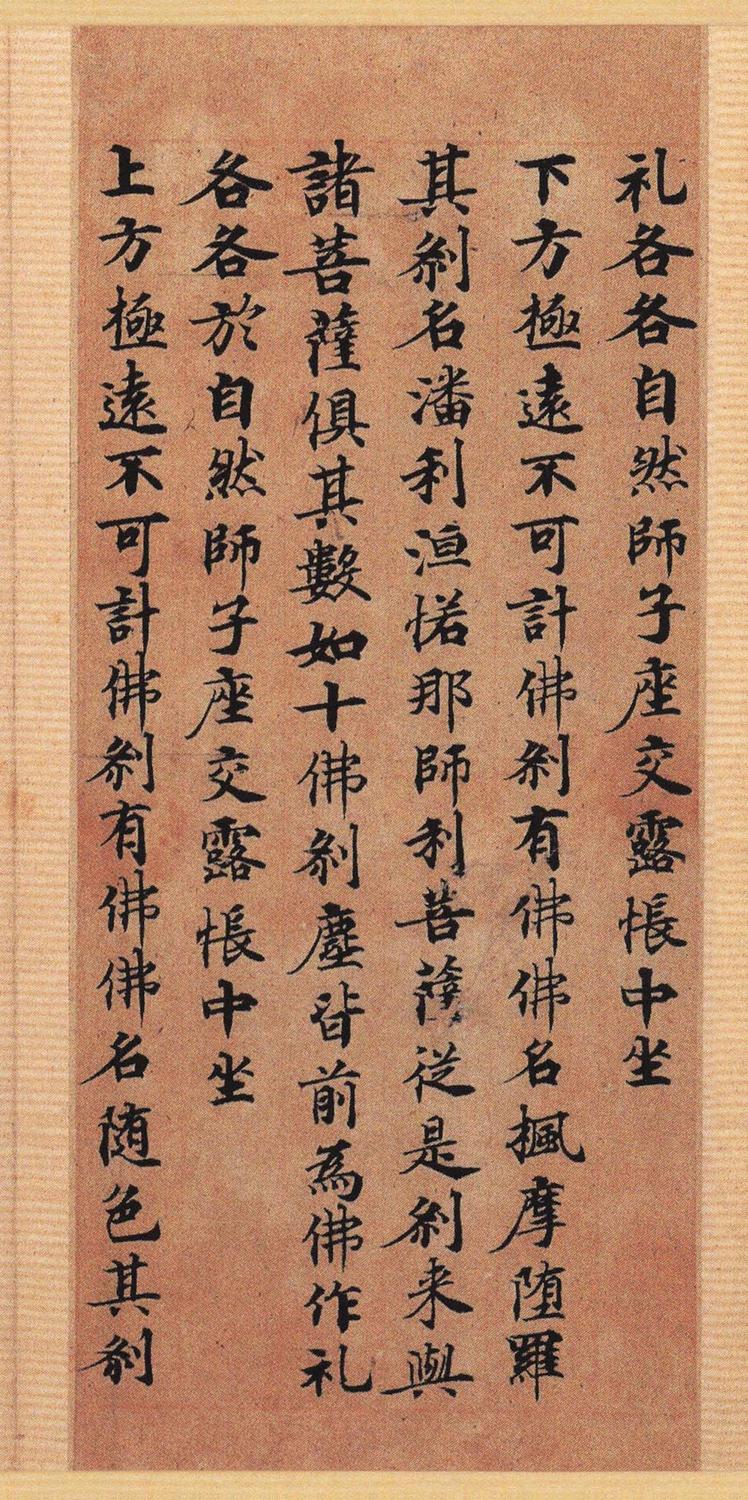 礼各各自然師子座交露帳中坐
下方極遠不可計佛刹有佛佛名楓摩堕羅
其刹名潘利洹偌那師利菩薩従是刹来與
諸菩薩俱其數如十佛刹塵皆前為佛作礼
各各於自然師子座交露帳中坐
上方極遠不可計佛刹有佛佛名随色其刹